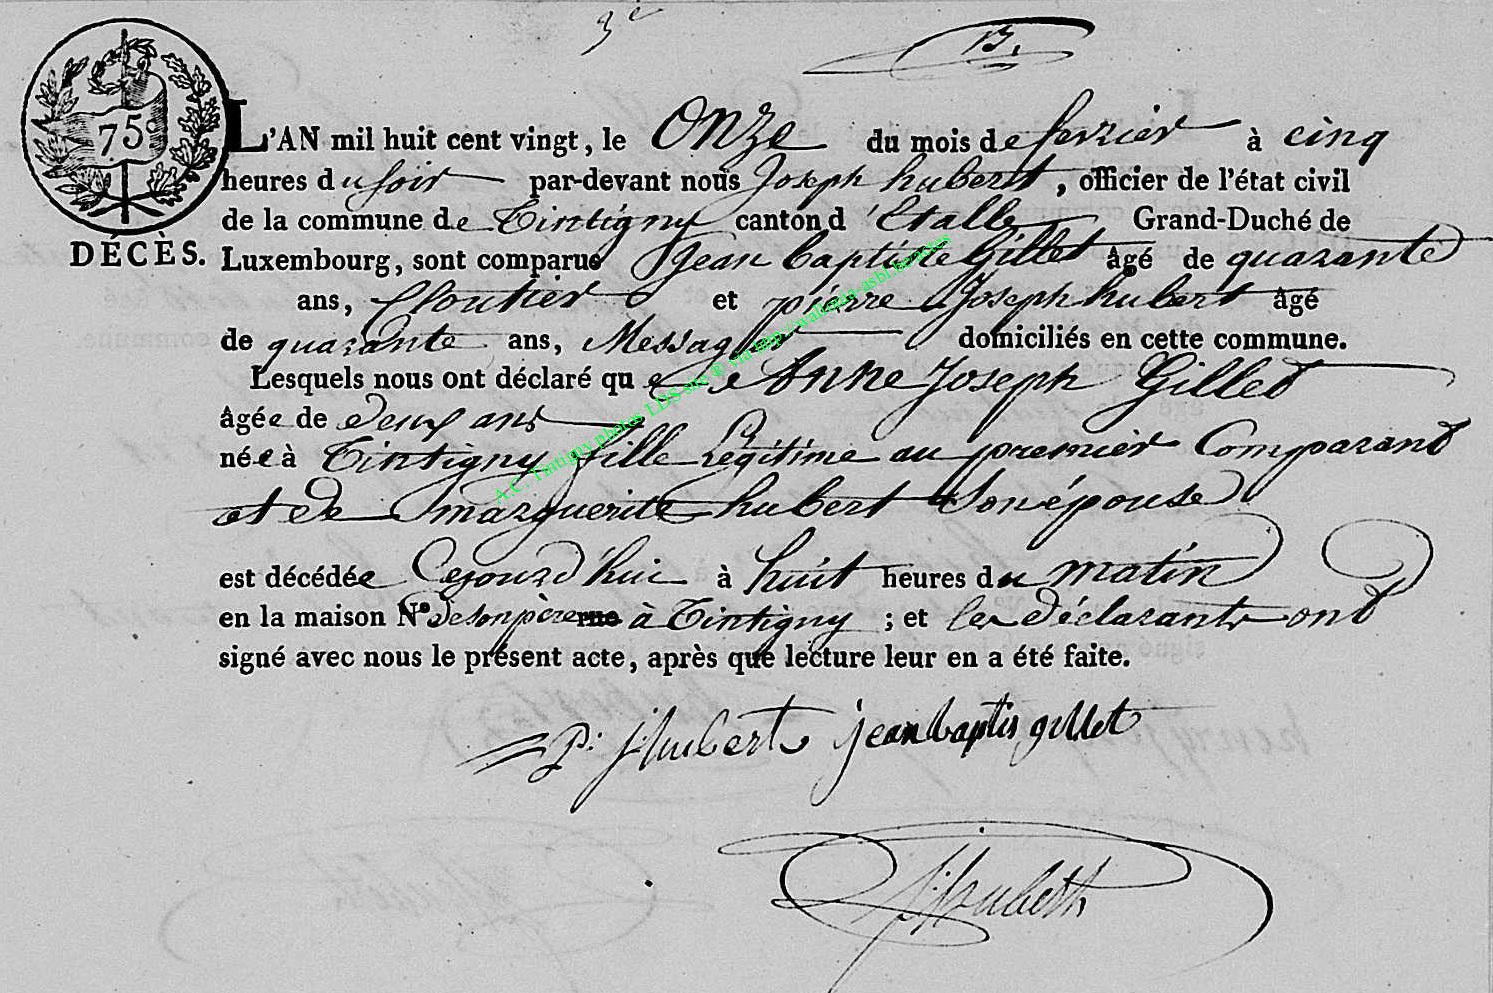 3e
13.
75c
L'AN mil huit cent vingt, le Onze du mois de fevrier à cinq
heures du soir par-devant nous Joseph hubert, officier de l'état civil
de la commune de Tintigny canton d'Etalle Grand-Duché de
DÉCÈS.
Luxembourg, sont comparus Jean baptiste Gillet âgé de quarante
ans, Cloutier et pierre Joseph hubert âgé
de quarante ans, Messager domiciliés en cette commune.
Lesquels nous ont déclaré que Anne Joseph Gillet
âgée de deux ans
née à Tintigny fille Légitime au premier Comparant
et de marguerite hubert Son épouse
est décédée Cejourd'hui à huit heures du matin
en la maison No de son père rue à Tintigny ; et les déclarants ont
signé avec nous le présent acte, après que lecture leur en a été faite.
P. j hubert jean baptis gillet
j hubert
A.C. Tintigny photos LDS-site ® via http://wallonia-asbl.be/actes